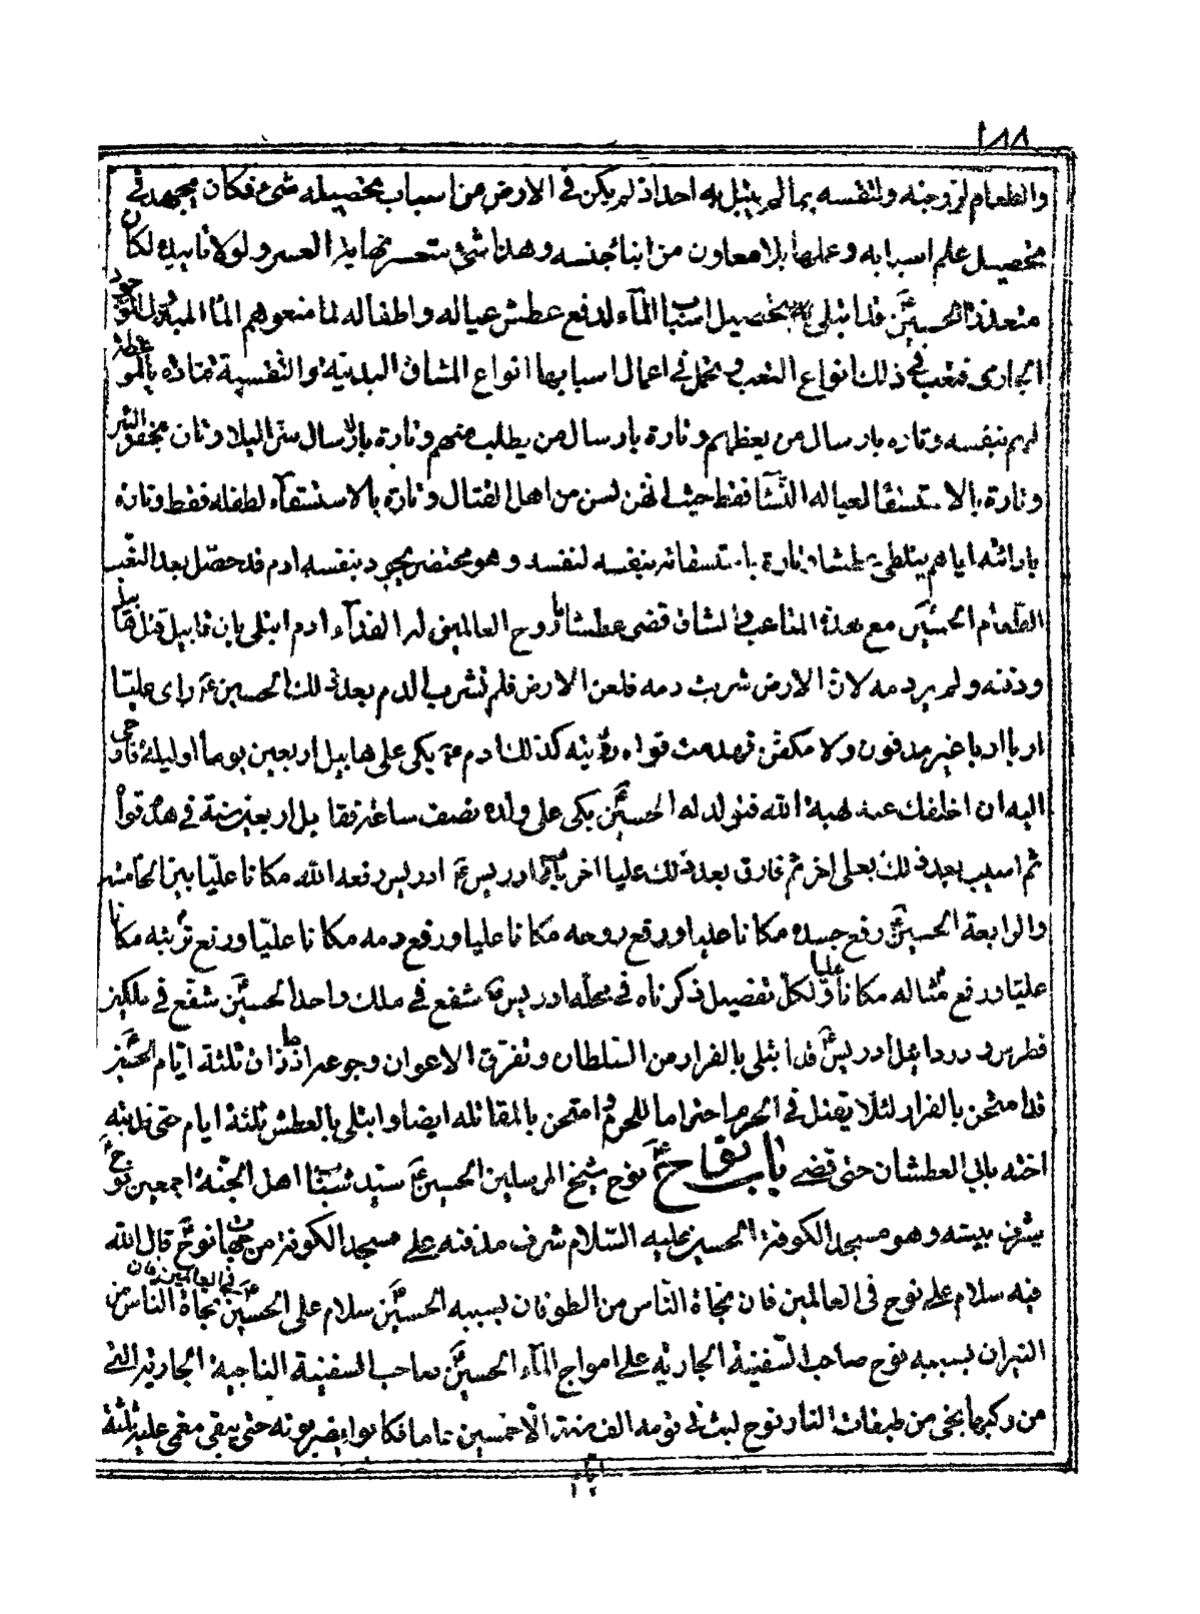 ١٨٨
والطعام لزوجته ولنفسه بما لم يبتل به احد اذ لم يكن في الارض من اسباب تحصيله شئ فكان يجهد في
تحصيل علم اسبابه وعملها بلا معاون من ابناء جنسه وهذا شئ متعسر نهاية العسر ولولا تاييده لكان
متعذرا الحسينؑ قد ابتلى بتحصيل اسباب المآء لدفع عطش عياله واطفاله لما منعوهم الماء المبذول
الجاري فتعب في ذلك انواع التعب وتحمل في اعمال اسبابها انواع المشاق البدنية والنفسية فتارة بالموعظة
لهم بنفسه وتارة بارسال من يعظهم وتارة بارسال من يطلب منهم وتارة بالارسال سرا ليلا وتارة بحفر البئر
وتارة بالاستسقا لعياله النسآء فقط حيث انهن لسن من اهل القتال وتارة بالاستسقآء لطفله فقط وتارة
بارائته اياهم يتلظى عطشا وتارة باستسقائه بنفسه لنفسه وهو محتضر يجود بنفسه ادم قد حصّل بعد التعب
الطعام الحسينؑ مع هذه المتاعب والمشاق قضى عطشانا روح العالمين له الفدآء ادم ابتلى بان قابيل قتل هابيل
ودفنه ولم ير دمه لان الارض شربت دمه فلعن الارض فلم تشرب الدم بعد ذلك الحسينؑ راى عليّا
اربا اربا غير مدفون ولا مكفن فهدمت قواه رؤيته كذلك ادمؑ بكى على هابيل اربعين يوما وليلة فاوحى
اليه ان اخلفك عنه هبة الله فتولد له الحسينؑ بكى على ولده نصف ساعة فقابل اربعين سنة في هدّ قواه
ثم اصيب بعد ذلك بعلى اخر ثم فارق بعد ذلك عليا اخر باب ادريسؑ ادريس رفعه الله مكانا عليّا بين الخامسة
والرابعة الحسينؑ رفع جسده مكانا عليا ورفع روحه مكانا عليا ورفع دمه مكانا عليّا ورفع تربته مكانا
عليّا ورفع مثاله مكانا عليا ولكلّ تفصيل ذكرناه في محلّه ادريسؑ شفع في ملك واحد الحسينؑ شفّع في ملكين
فطرس ودردائيل ادريسؑ قد ابتلى بالفرار من السّلطان وتفرق الاعوان وجوعه اذ ذاك ثلثة ايّام الحسينؑ
قد امتحن بالفرار لئلا يقتل في الحرم احتراما للحرم ثم امتحن بالمقاتله ايضا وابتلى بالعطش ثلثة ايام حتى ندبته
اخته بابي العطشان حتى قضى باب نوحؑ نوح شيخ المرسلين الحسينؑ سيّد شباب اهل الجنّة اجمعين نوحؑ
بيته وهو مسجد الكوفة الحسين عليه السّلام شرف مدفنه على مسجد الكوفة من جهات نوحؑ قال الله
فيه سلام على نوح في العالمين فان نجاة النّاس من الطوفان بسببه الحسينؑ سلام على الحسينؑ في العالمين فان نجاة الناس من
النيران بسببه نوح صاحب السّفينة الجارية على امواج المآء الحسينؑ صاحب السفينة الناجية الجارية التي
من ركبها نجى من طبقات النار نوح لبث في قومه الف سنة الّا خمسين عاما فكانوا يضربونه حتى يبقى مغمى عليه ثلثة
ايام